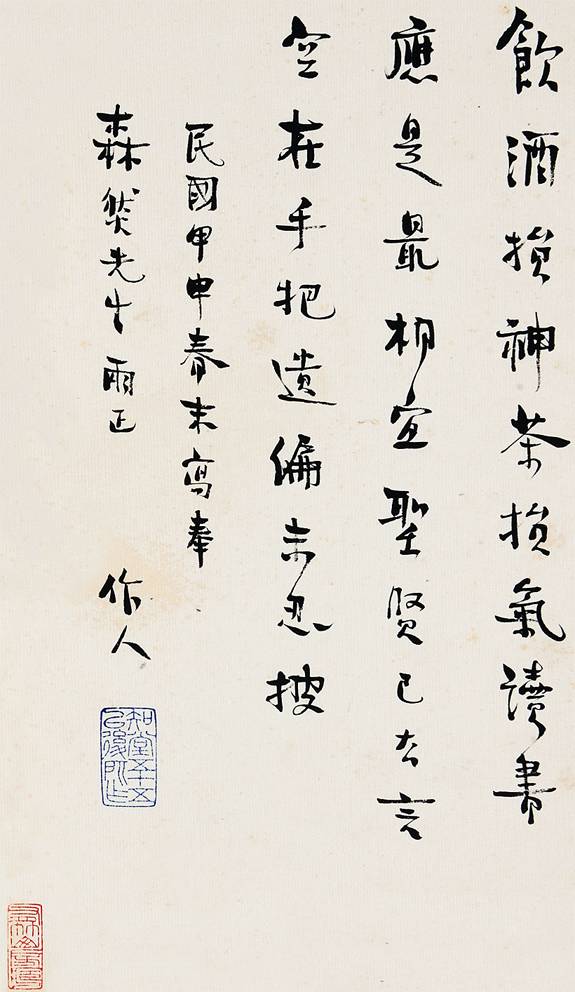 飲酒損神茶損氣讀書
應是最相宜聖賢已去言
空在手把遺編未忍披
民國甲申春末寫奉
森然先生雨正 作人
知堂五十五
㠯後所作